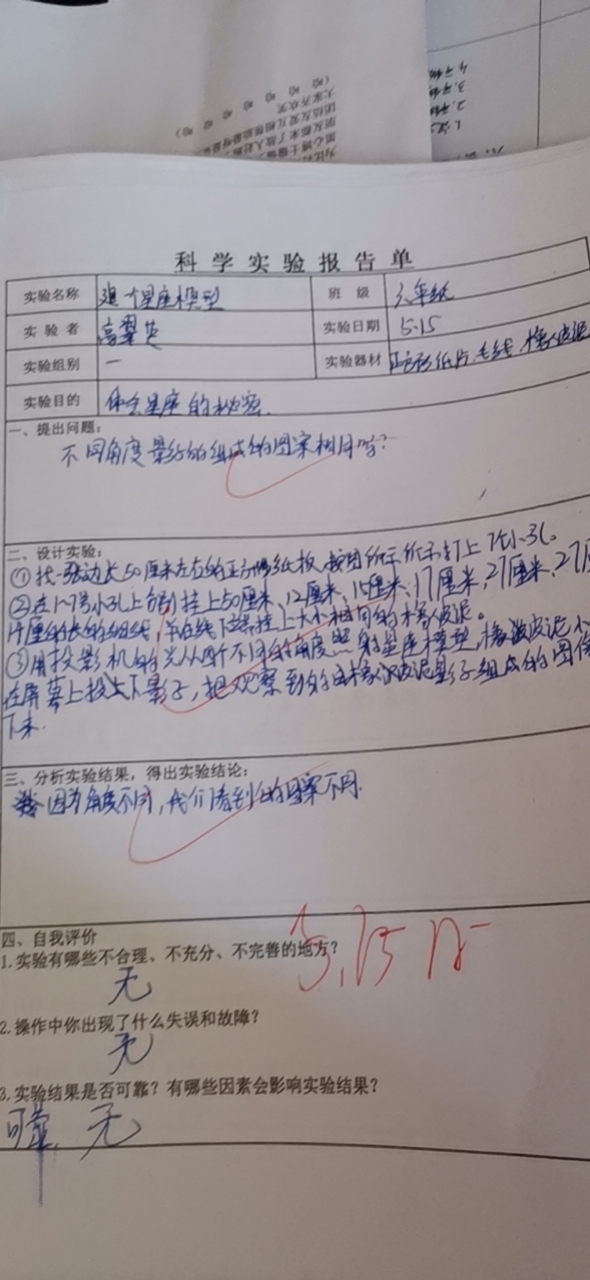 科学实验报告单
实验名称 建一个星座模型 班级 六年级
实验者 高翠芝 实验日期 5.15
实验组别 一 实验器材 正方形纸片、毛线、橡皮泥
实验目的 体会星座的秘密
一、提出问题:
不同角度影子的组成的图案相同吗?
二、设计实验:
①找一张边长50厘米左右的正方形纸板,按图所示 打上7个小孔。
②在1~7号小孔上分别挂上50厘米、12厘米、15厘米、17厘米、27厘米、27厘
厘米长的细线,并在线下端挂上大小相同的橡皮泥。
③用投影机的光从四个不同的角度照射星座模型,橡皮泥小
在屏幕上投上下影子,把观察到的由橡皮泥影子组成的图像
下来.
三、分析实验结果,得出实验结论:
因为角度不同,我们看到的图案不同.
四、自我评价
1.实验有哪些不合理、不充分、不完善的地方?
无
5.15
2.操作中你出现了什么失误和故障?
无
3.实验结果是否可靠?有哪些因素会影响实验结果?
可靠、无